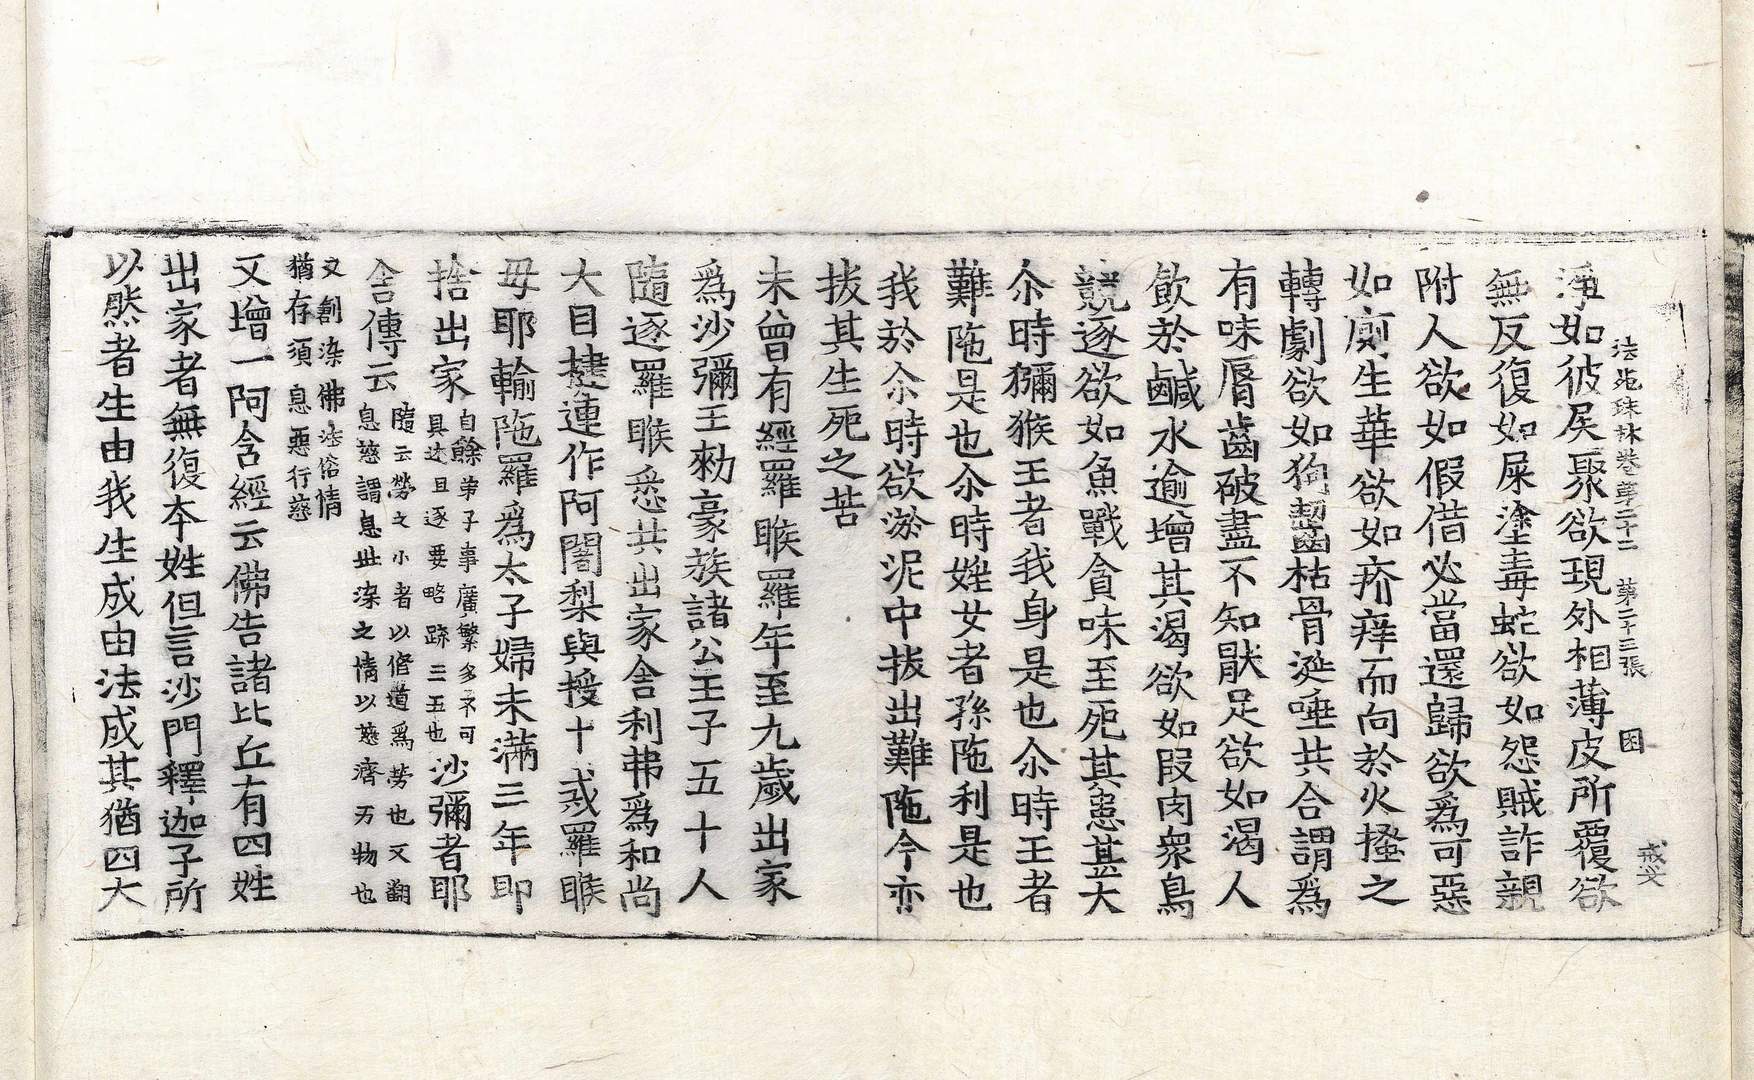 法苑珠林卷第二十二　第二十三張　困
戒文
淨如彼屎聚欲現外相薄皮所覆欲
無反復如屎塗毒蛇欲如怨賊詐親
附人欲如假借必當還歸欲爲可惡
如廁生華欲如疥痒而向於火搔之
轉劇欲如狗齧枯骨涎唾共合謂爲
有味脣齒破盡不知猒足欲如渴人
飲於鹹水逾增其渴欲如段肉衆鳥
競逐欲如魚戰貪味至死其患甚大
尒時獼猴王者我身是也尒時王者
難陁是也尒時婬女者孫陁利是也
我於尒時欲淤泥中拔出難陁今亦
拔其生死之苦
未曾有經羅睺羅年至九歲出家
爲沙彌王勑豪族諸公王子五十人
隨逐羅睺悉共出家舍利弗爲和尚
大目揵連作阿闍梨與授十戒羅睺
母耶輸陁羅爲太子婦未滿三年即
捨出家自餘弟子事廣繁多不可
具述且逐要略跡三五也沙彌者耶
舍傳云隨云勞之小者以修道爲勞也又翻
息慈謂息世染之情以慈濟万物也
又創染佛法俗情
猶存須息惡行慈
又增一阿含經云佛告諸比丘有四姓
出家者無復本姓但言沙門釋迦子所
以然者生由我生成由法成其猶四大